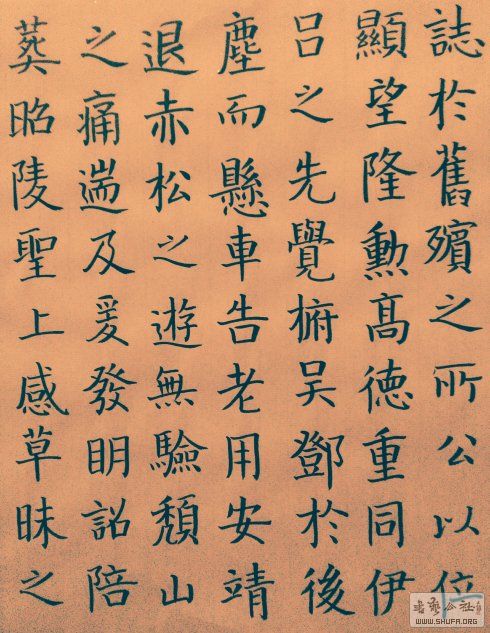 誌於舊殯之所公以位
顯望隆勳髙德重同伊
呂之先覺俯吳鄧於後
塵而懸車告老用安靖
退赤松之遊無驗頹山
之痛遄及爰發明詔陪
葬昭陵聖上感草昧之
书艺公社
WWW.SHUFA.ORG